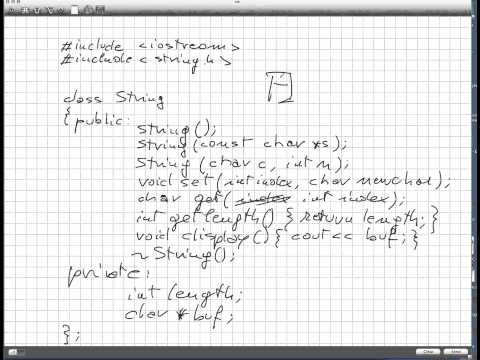 #include <iostream>
#include <string.h>
class String
{ public:
string();
String(const char *s);
String (char c, int n);
void set(int index, char newchar);
char get(index int index);
int getlength() { return length; }
void display() { cout << buf; }
~ String();
private:
int length;
char * buf;
};
Clear
Save